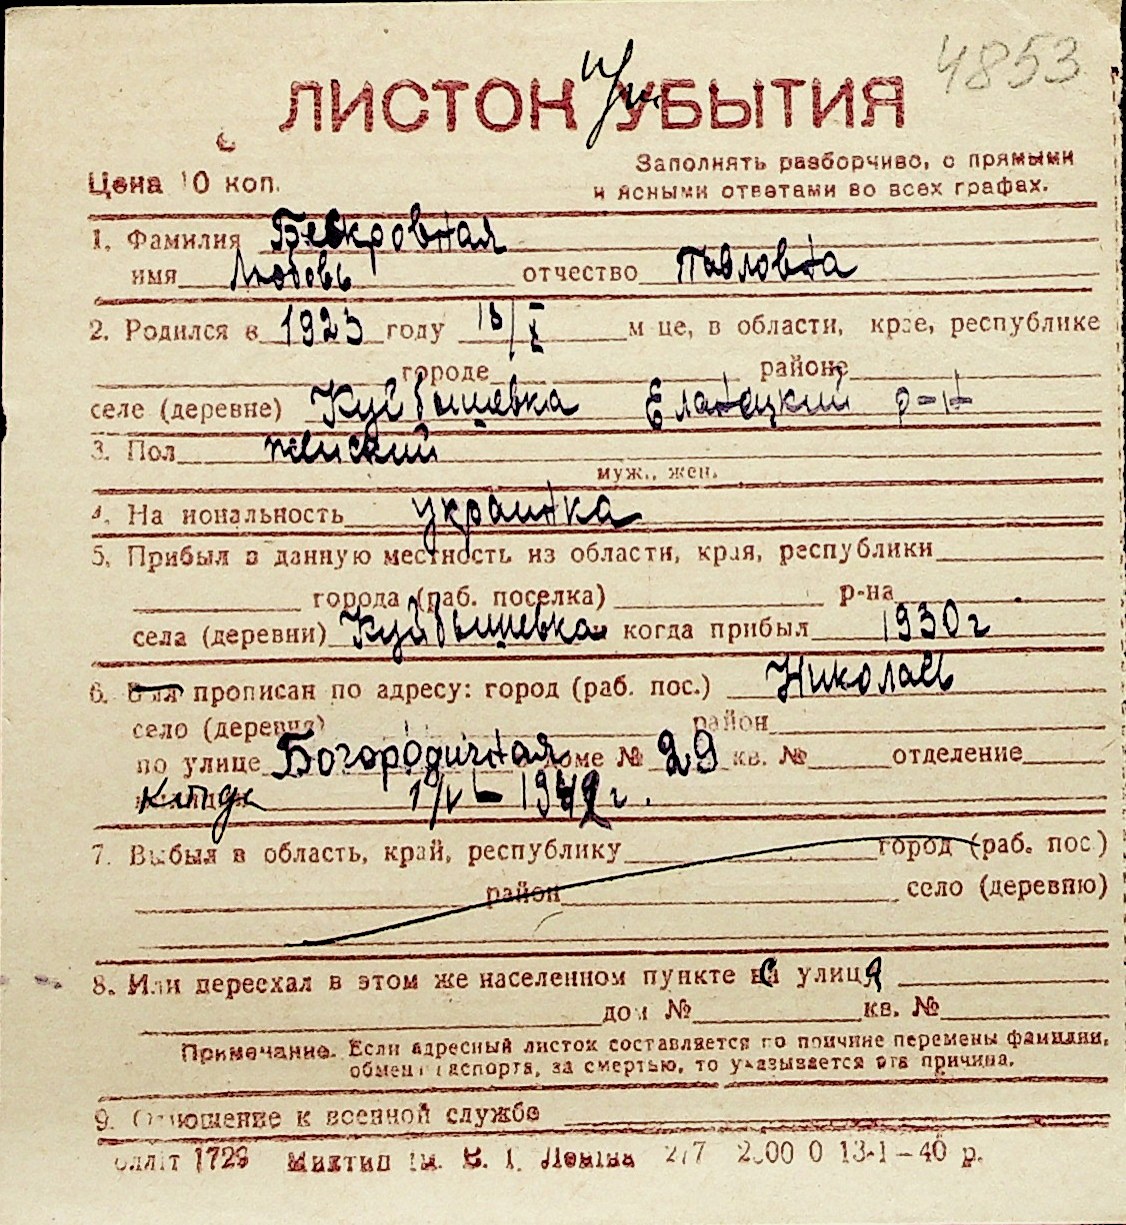 4853
ЛИСТОК УБЫТИЯ
Цена 10 коп.
Заполнять разборчиво, с прямыми
и ясными ответами во всех графах.
1. Фамилия Бескровная
имя Любовь отчество Павловна
2. Родился в 1923 году м-це, в области, крае, республике
городе районе
селе (деревне) Куйбышевка Еланецкий р-н
3. Пол женский
муж., жен.
4. Национальность украинка
5. Прибыл в данную местность из области, края, республики
города (раб. поселка) р-на
села (деревни) Куйбышевка когда прибыл 1930 г
6. Был прописан по адресу: город (раб. пос.) Николаев
село (деревня) район
по улице Богородичная доме № 29 кв. № отделение
милиции 1942 г.
7. Выбыл в область, край, республику город (раб. пос.)
район село (деревню)
8. Или переехал в этом же населенном пункте на улицу
дом № кв. №
Примечание. Если адресный листок составляется по причине перемены фамилии,
обмена паспорта, за смертью, то указывается эта причина.
9. Отношение к военной службе
1728 Миктип ім. В. І. Леніна 13-1-40 р.